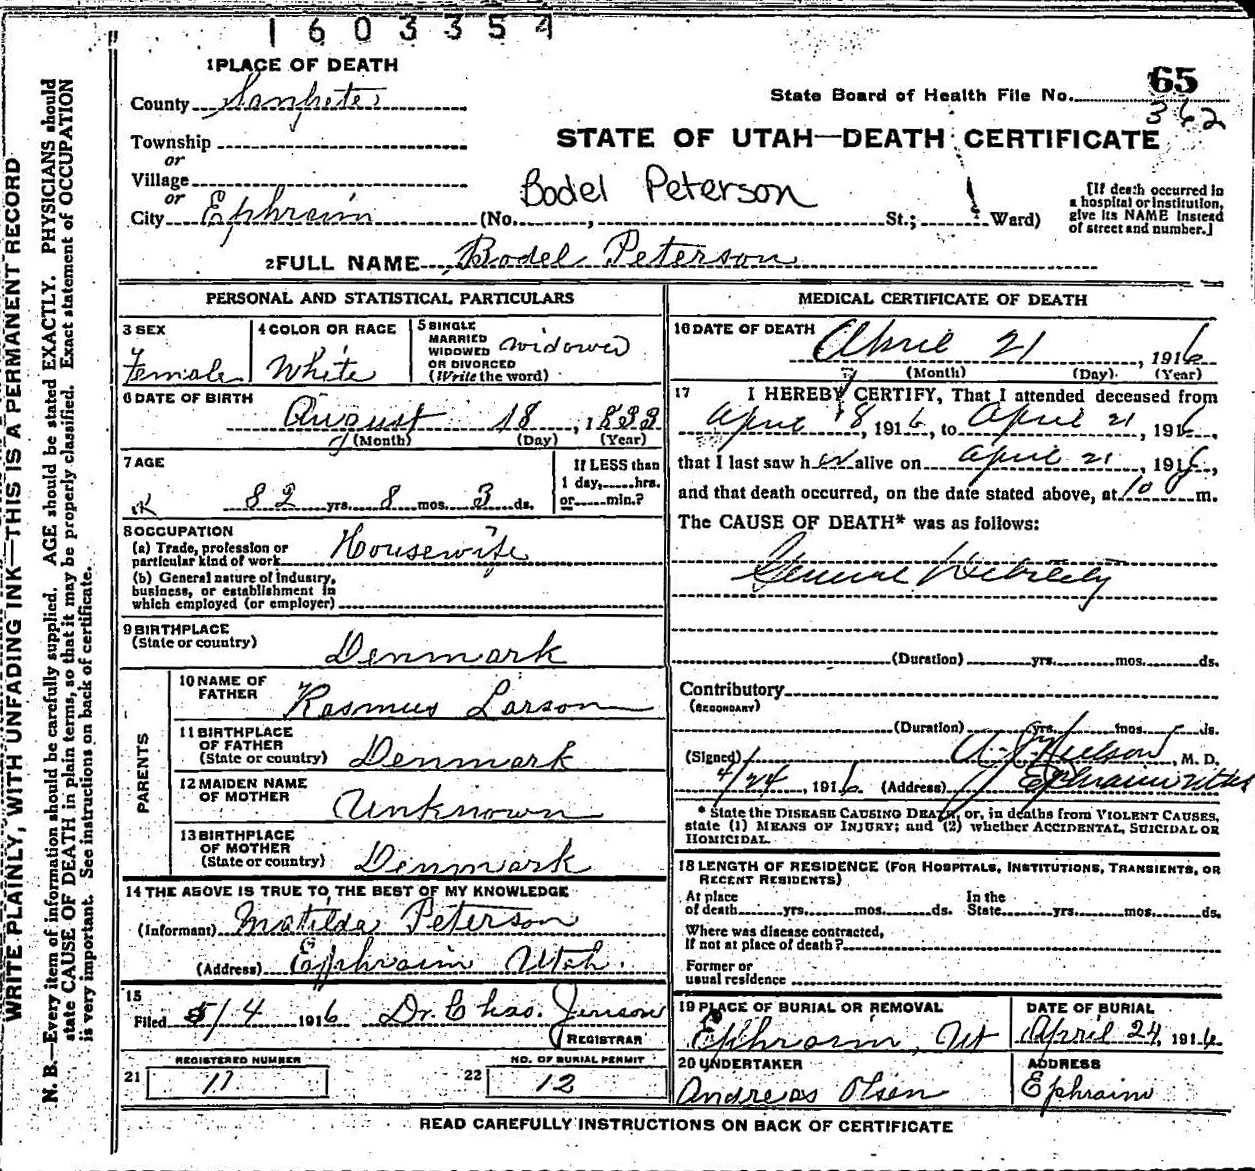 1603354
1 PLACE OF DEATH
County Sanpete
65
State Board of Health File No. 362
Township
STATE OF UTAH—DEATH CERTIFICATE
or
Village
or
Bodel Peterson
[If death occurred in
a hospital or institution,
give its NAME instead
of street and number.]
City Ephraim (No. , St.; Ward)
2 FULL NAME Bodel Peterson
PERSONAL AND STATISTICAL PARTICULARS
3 SEX
Female
4 COLOR OR RACE
White
5 SINGLE
MARRIED
WIDOWED
OR DIVORCED
(Write the word)
Widowed
6 DATE OF BIRTH
August 18, 1833
(Month) (Day) (Year)
7 AGE
82 yrs. 8 mos. 3 ds.
If LESS than
1 day, hrs.
or min.?
8 OCCUPATION
(a) Trade, profession or
particular kind of work Housewife
(b) General nature of industry,
business, or establishment in
which employed (or employer)
9 BIRTHPLACE
(State or country) Denmark
PARENTS
10 NAME OF
FATHER Rasmus Larson
11 BIRTHPLACE
OF FATHER
(State or country) Denmark
12 MAIDEN NAME
OF MOTHER Unknown
13 BIRTHPLACE
OF MOTHER
(State or country) Denmark
14 THE ABOVE IS TRUE TO THE BEST OF MY KNOWLEDGE
(Informant) Matilda Peterson
(Address) Ephraim Utah.
15
Filed 5/4 1916 Dr. Chas. Jenson
REGISTRAR
REGISTERED NUMBER
21 11
NO. OF BURIAL PERMIT
22 12
MEDICAL CERTIFICATE OF DEATH
16 DATE OF DEATH
April 21, 1916
(Month) (Day) (Year)
17 I HEREBY CERTIFY, That I attended deceased from
April 18, 1916, to April 21, 1916,
that I last saw her alive on April 21, 1916,
and that death occurred, on the date stated above, at 10 m.
The CAUSE OF DEATH* was as follows:
General Debility
(Duration) yrs. mos. ds.
Contributory
(SECONDARY)
(Duration) yrs. mos. ds.
(Signed) A. J. Nielson, M. D.
4/24, 1916 (Address) Ephraim Utah
* State the DISEASE CAUSING DEATH, or, in deaths from VIOLENT CAUSES,
state (1) MEANS OF INJURY; and (2) whether ACCIDENTAL, SUICIDAL OR
HOMICIDAL.
18 LENGTH OF RESIDENCE (FOR HOSPITALS, INSTITUTIONS, TRANSIENTS, OR
RECENT RESIDENTS)
At place
of death yrs. mos. ds.
In the
State yrs. mos. ds.
Where was disease contracted,
If not at place of death?
Former or
usual residence
19 PLACE OF BURIAL OR REMOVAL
Ephraim, Ut
DATE OF BURIAL
April 24, 1916
20 UNDERTAKER
Andreas Olsen
ADDRESS
Ephraim
READ CAREFULLY INSTRUCTIONS ON BACK OF CERTIFICATE
WRITE PLAINLY, WITH UNFADING INK—THIS IS A PERMANENT RECORD
N. B.—Every item of information should be carefully supplied. AGE should be stated EXACTLY. PHYSICIANS should
state CAUSE OF DEATH in plain terms, so that it may be properly classified. Exact statement of OCCUPATION
is very important. See instructions on back of certificate.